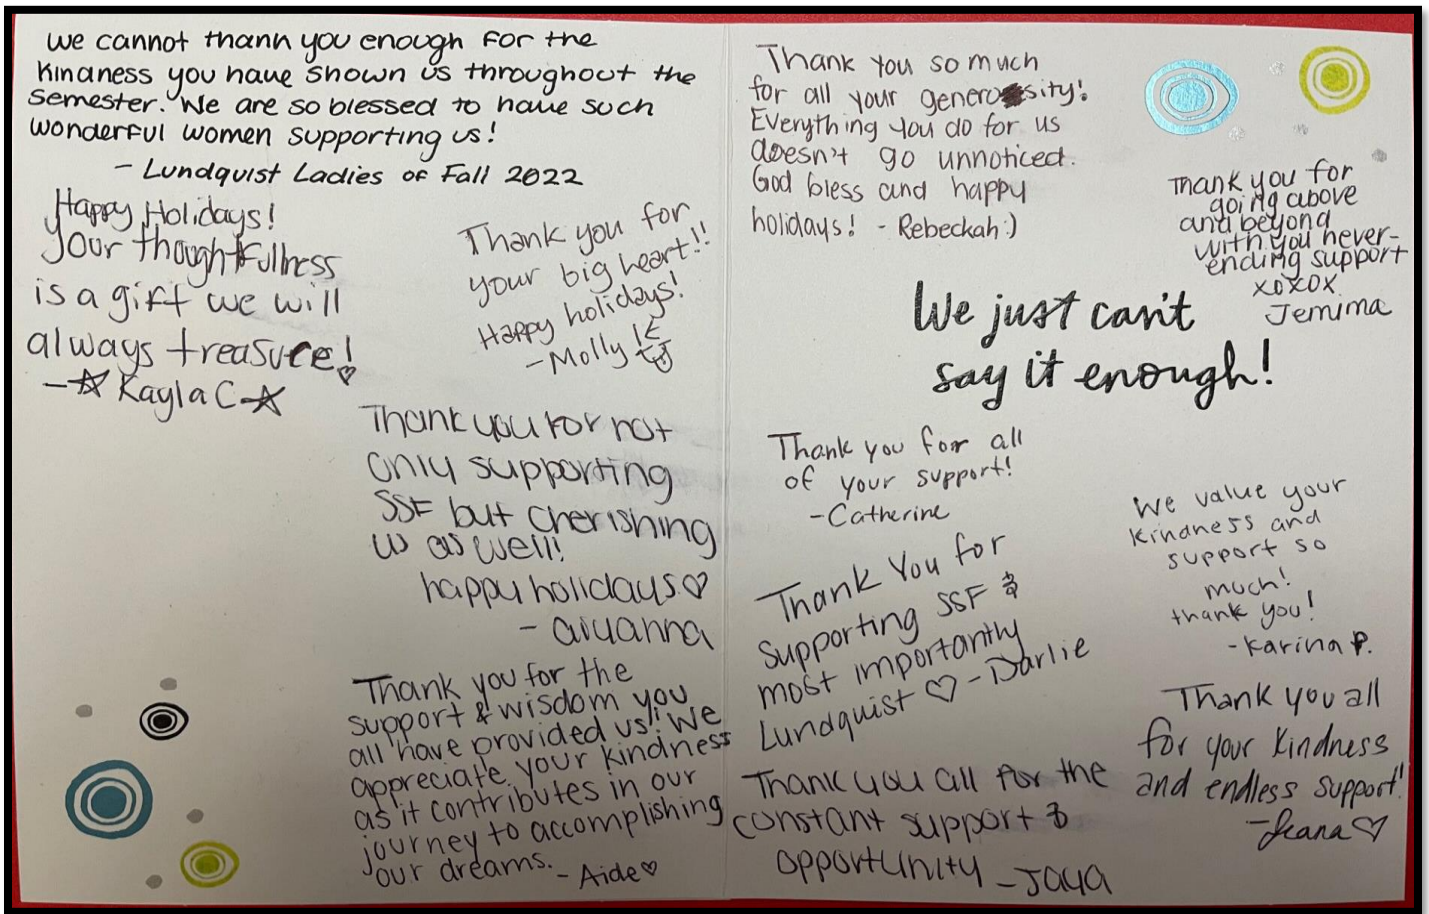 We cannot thank you enough for the
kindness you have shown us throughout the
semester. We are so blessed to have such
wonderful women supporting us!
- Lundquist Ladies of Fall 2022
Happy Holidays!
Your thoughtfullness
is a gift we will
always treasure!
- Kayla C
Thank you for
your big heart!!
Happy holidays!
- Molly
Thank you for not
only supporting
SSF but cherishing
us as well!
happy holidays ♡
- aryanna
Thank you for the
support & wisdom you
all have provided us! We
appreciate your kindness
as it contributes in our
journey to accomplishing
our dreams. - Aide ♡
Thank you so much
for all your generosity!
Everything you do for us
doesn't go unnoticed.
God bless and happy
holidays! - Rebeckah :)
Thank you for
going above
and beyond
with you never-
ending support
xoxox
Jemima
We just can't
say it enough!
Thank you for all
of your support!
- Catherine
We value your
kindness and
support so
much!
thank you!
- Karina P.
Thank You for
Supporting SSF &
most importantly
Lundquist ♡ - Darlie
Thank you all
for your kindness
and endless support!
- Jeana ♡
Thank you all for the
constant support &
opportunity - Jaya